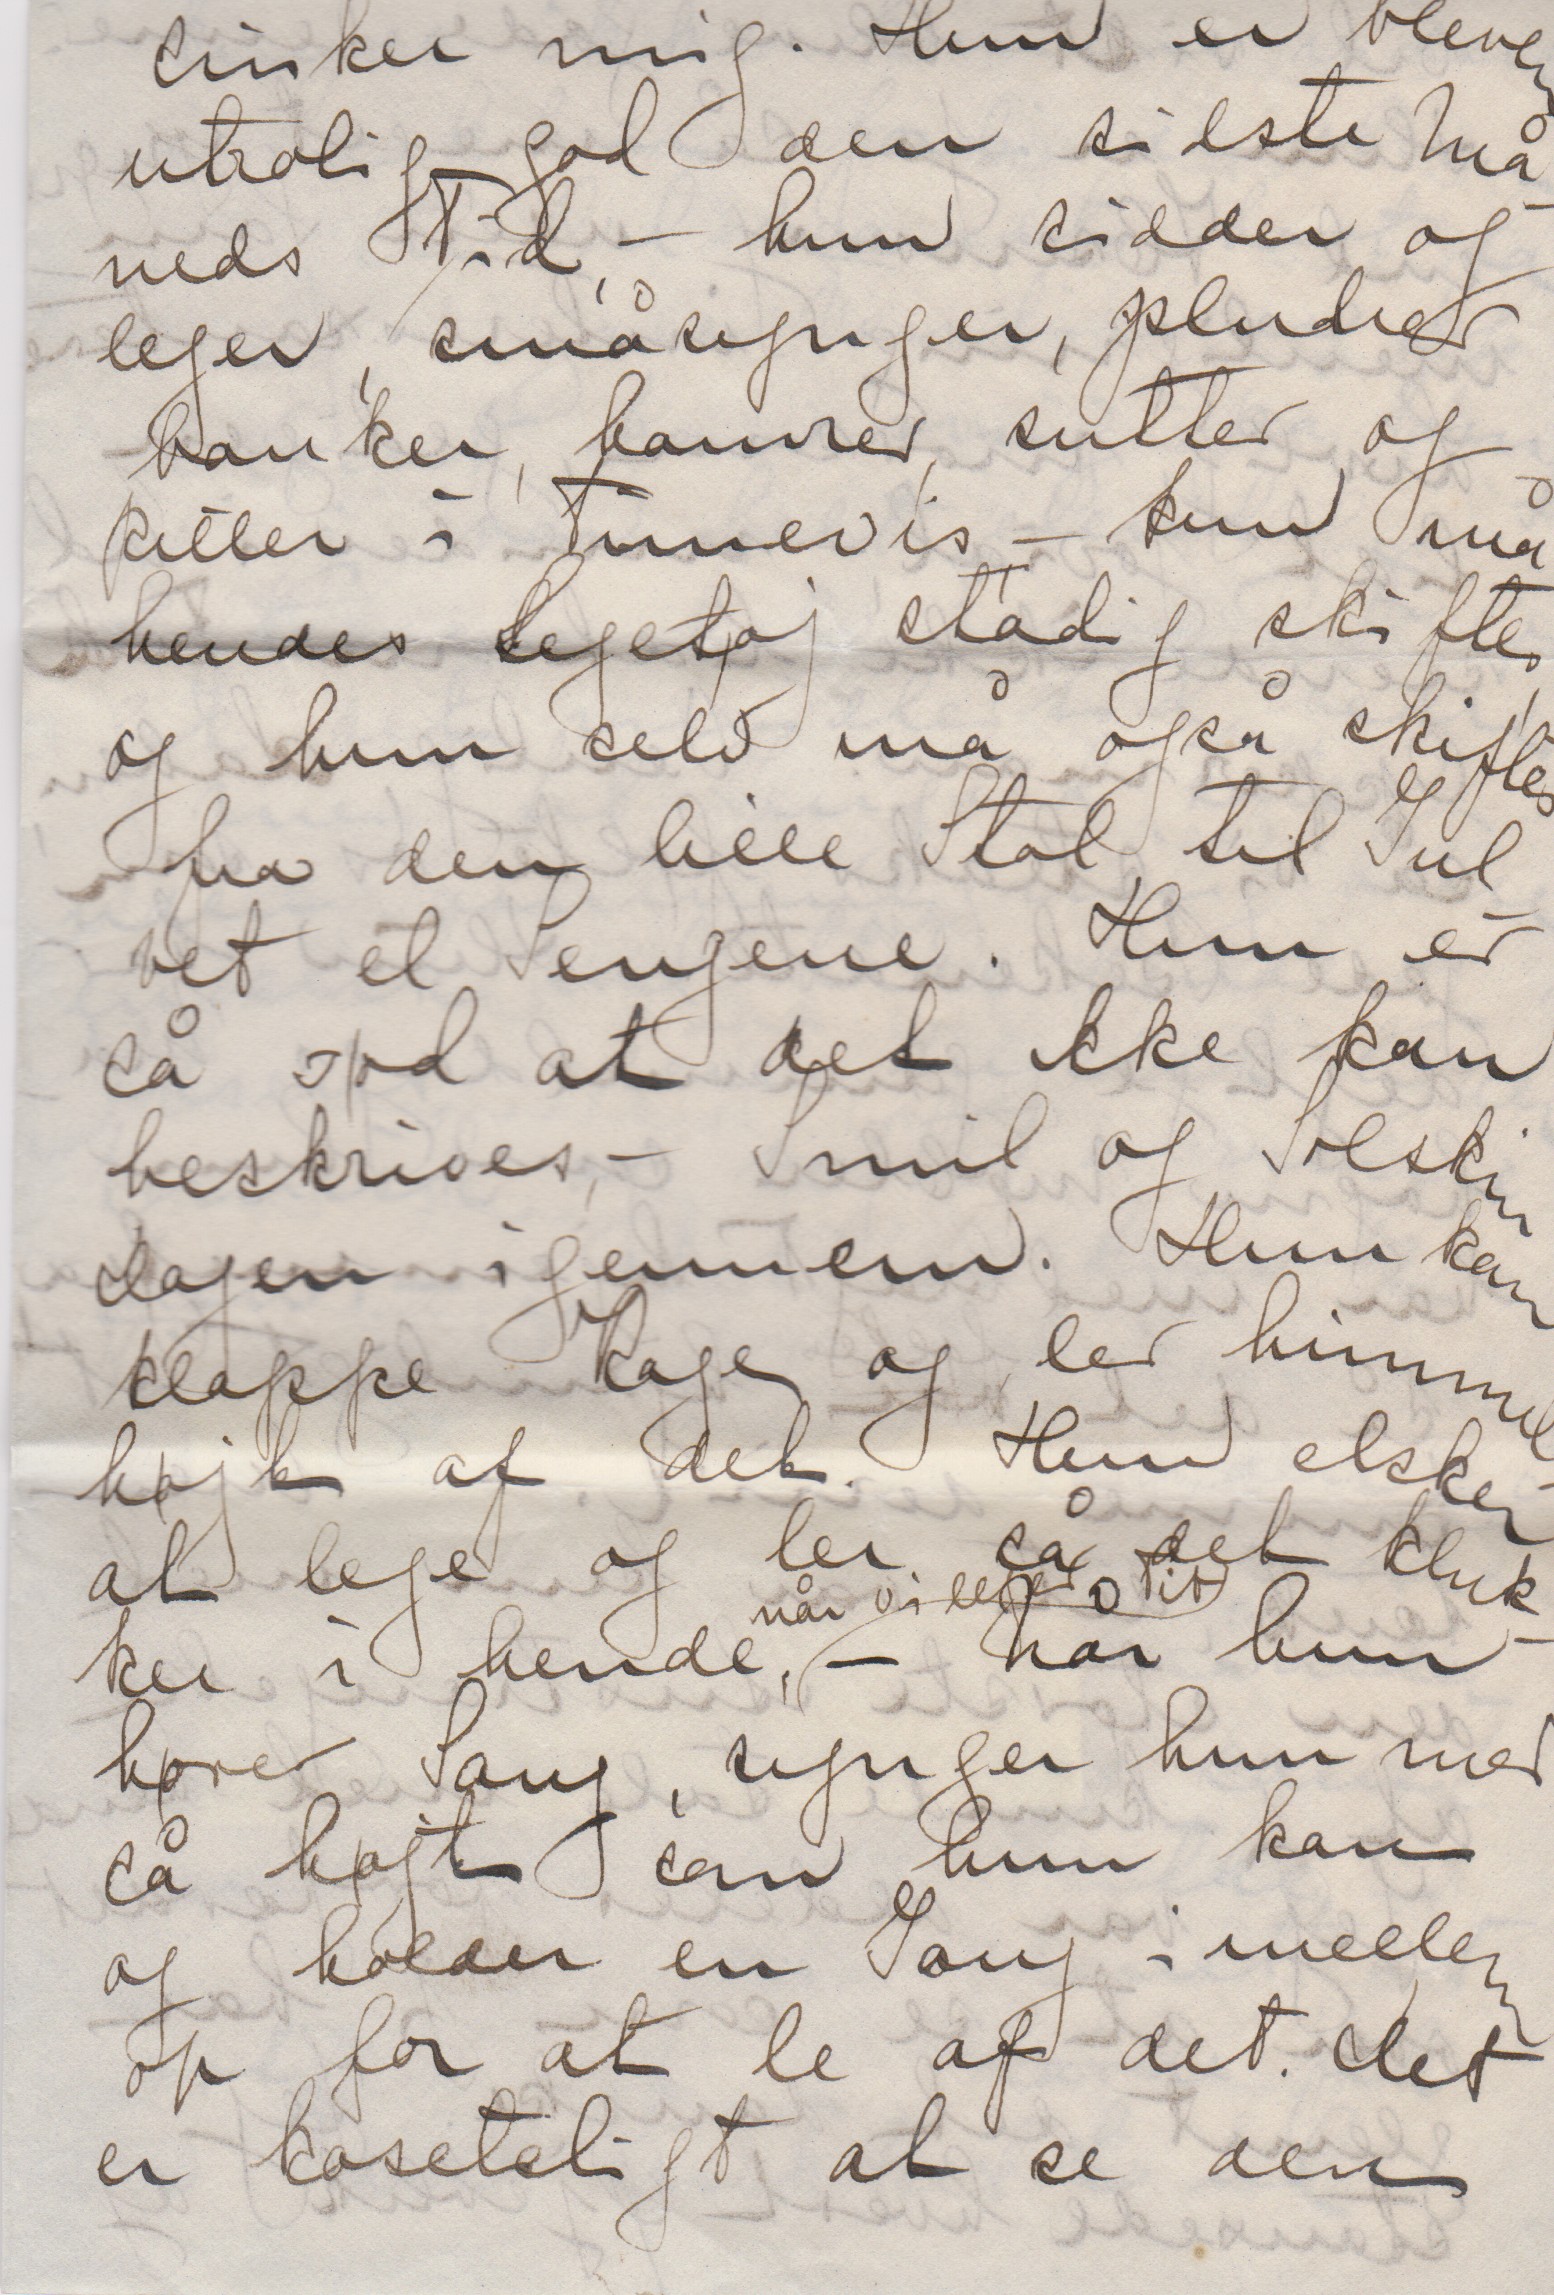 sinker mig. Hun er bleven
utrolig god den sidste Må-
neds Tid, – hun sidder og
leger, småsynger, pludrer
banker, hamrer, sutter og
piller i Timevis – kun må
hendes Legetøj stadig skiftes,
og hun selv må også skiftes
fra den lille Stol til Gul
vet el Sengene. Hun er
så sød at det ikke kan
beskrives, – Smil og Solskin
dagen igennem. Hun kan
klappe Kage og ler himmel-
højt af det. Hun elsker
at lege og ler så det kluk-
når vi leger Tit
ker i hende, – når hun
hører Sang, synger hun med
så højt som hun kan
og holder en Gang imellem
op for at le af det. Det
er kosteligt at se den